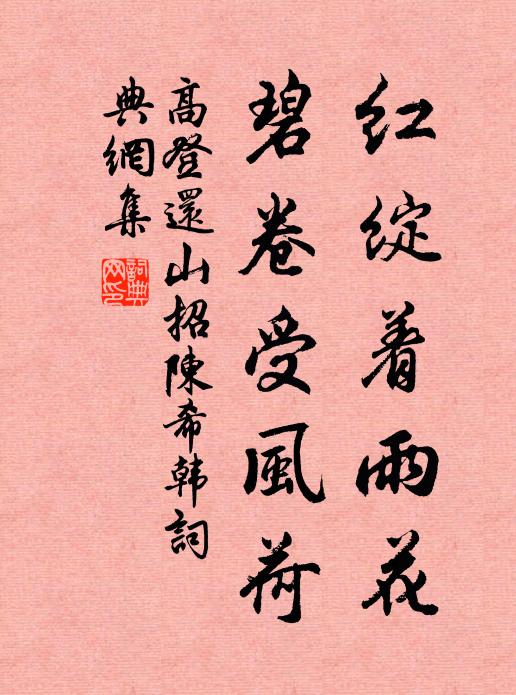 红绽着雨花
碧卷受風荷
高登還山招陳希韩詞
典網集
詞典
网印